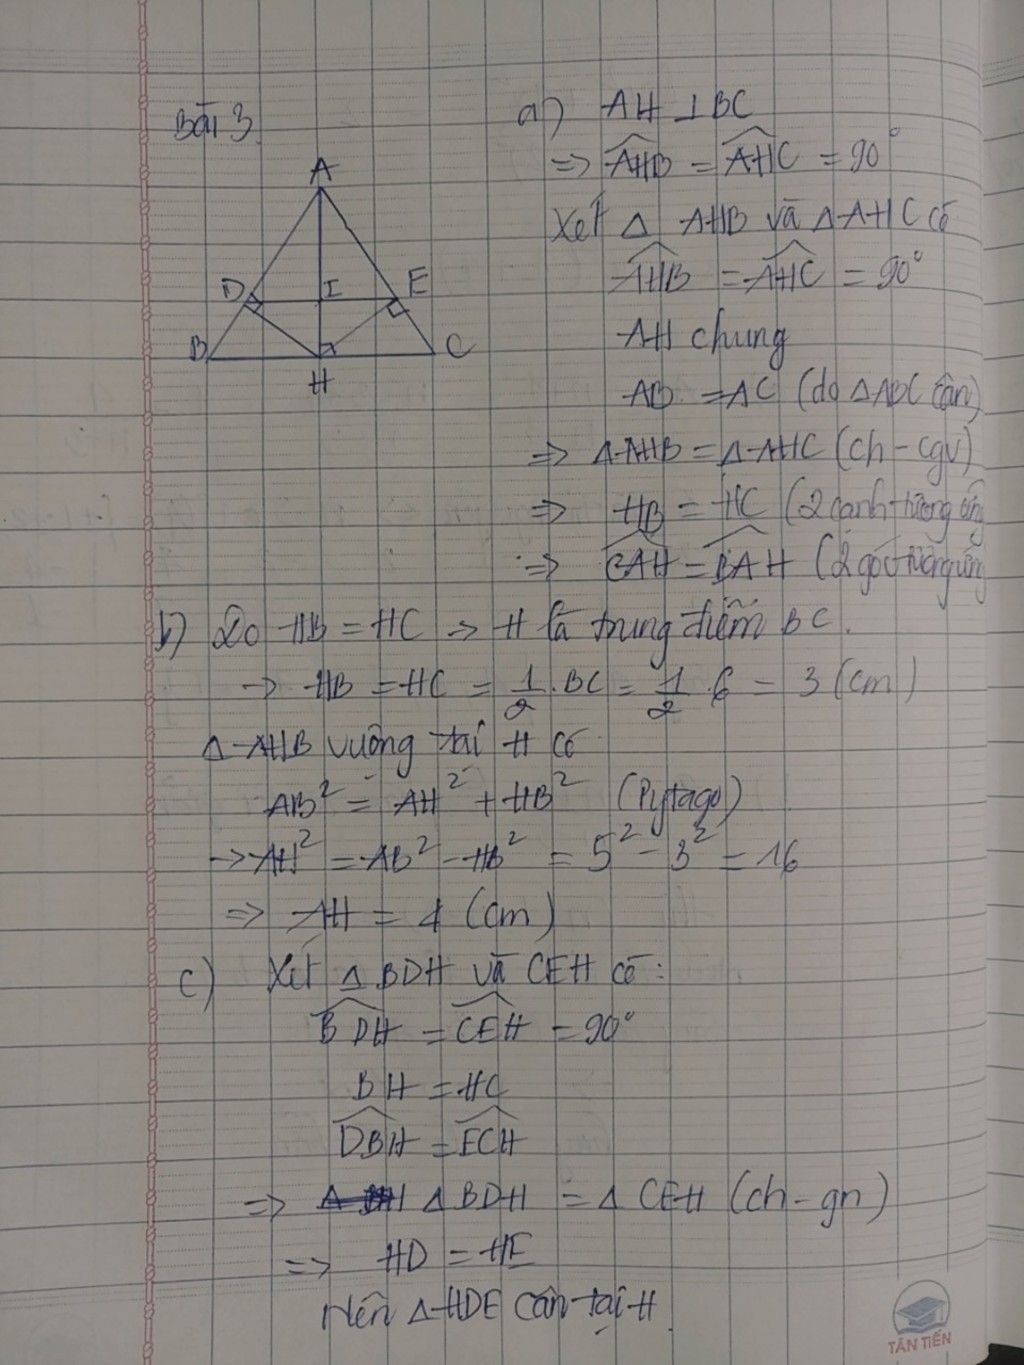 Bài 3
a) AH ⊥ BC
=> AHB = AHC = 90°
Xét Δ AHB và Δ AHC có
AHB = AHC = 90°
AH chung
AB = AC (do Δ ABC cân)
=> Δ AHB = Δ AHC (ch - cgv)
=> HB = HC (2 cạnh tương ứng
=> CAH = BAH (2 góc tương ứng
A
D I E
B H C
b) Do HB = HC => H là trung điểm BC.
-> HB = HC = 1/2 . BC = 1/2 . 6 = 3 (cm)
Δ AHB vuông tại H có
AB² = AH² + HB² (Pytago)
-> AH² = AB² - HB² = 5² - 3² = 16
=> AH = 4 (cm)
c) Xét Δ BDH và CEH có:
BDH = CEH = 90°
BH = HC
DBH = ECH
=> Δ BDH = Δ CEH (ch - gn)
=> HD = HE
Nên Δ HDE cân tại H
TÂN TIẾN